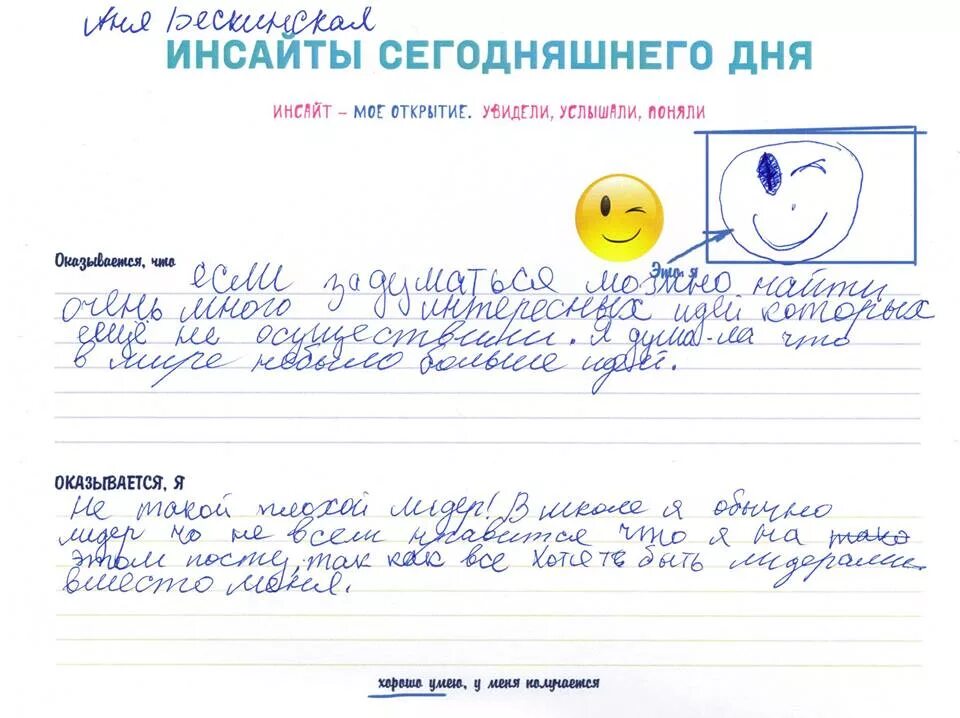 Аня Бескинская
ИНСАЙТЫ СЕГОДНЯШНЕГО ДНЯ
ИНСАЙТ – МОЕ ОТКРЫТИЕ. УВИДЕЛИ, УСЛЫШАЛИ, ПОНЯЛИ
Это я
Оказывается, что если задуматься можно найти
очень много интересных идей которых
ещё не осуществили. Я дума-ла что
в мире небыло больше идей.
ОКАЗЫВАЕТСЯ, Я
Не такой плохой лидер! В школе я обычно
лидер но не всем нравится что я на тако
этом посту, так как все хотеть быть лидерами
вместо меня.
хорошо умею, у меня получается